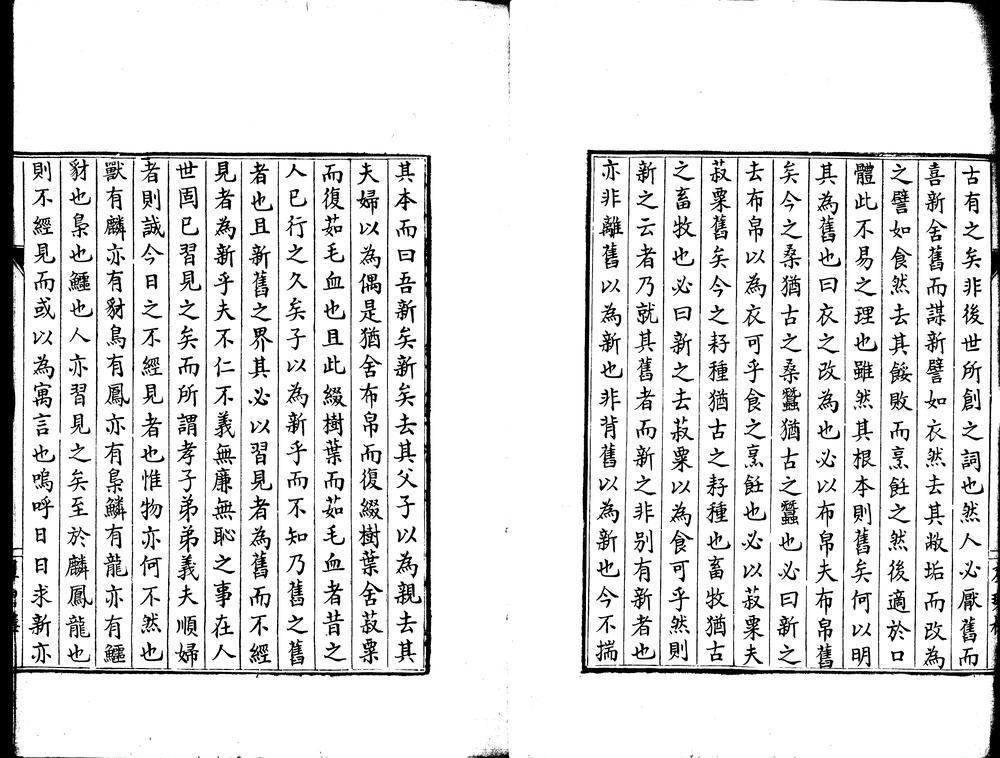 古有之矣非後世所創之詞也然人必厭舊而
喜新舍舊而謀新譬如衣然去其敝垢而改為
之譬如食然去其餒敗而烹飪之然後適於口
體此不易之理也雖然其根本則舊矣何以明
其為舊也曰衣之改為也必以布帛夫布帛舊
矣今之桑猶古之桑蠶猶古之蠶也必曰新之
去布帛以為衣可乎食之烹飪也必以菽粟夫
菽粟舊矣今之耔種猶古之耔種也畜牧猶古
之畜牧也必曰新之去菽粟以為食可乎然則
新之云者乃就其舊者而新之非別有新者也
亦非離舊以為新也非背舊以為新也今不揣
其本而曰吾新矣新矣去其父子以為親去其
夫婦以為偶是猶舍布帛而復綴樹葉舍菽粟
而復茹毛血也且此綴樹葉而茹毛血者昔之
人已行之久矣子以為新乎而不知乃舊之舊
者也且新舊之界其必以習見者為舊而不經
見者為新乎夫不仁不義無廉無恥之事在人
世固已習見之矣而所謂孝子弟弟義夫順婦
者則誠今日之不經見者也惟物亦何不然也
獸有麟亦有豺鳥有鳳亦有梟鱗有龍亦有鱷
豺也梟也鱷也人亦習見之矣至於麟鳳龍也
則不經見而或以為寓言也嗚呼日日求新亦